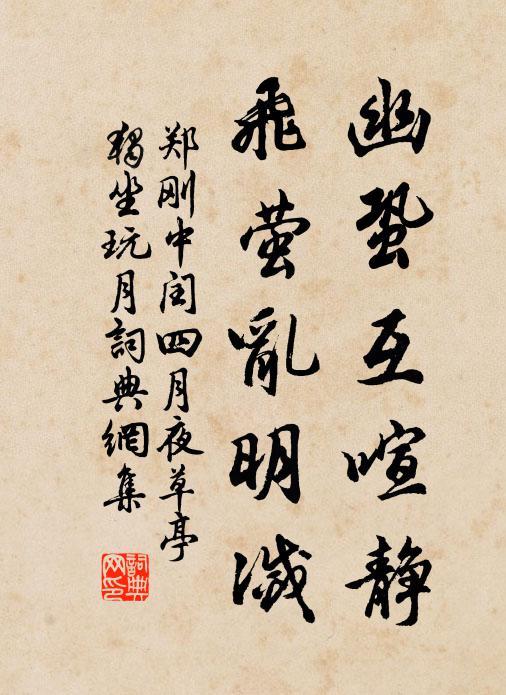 幽蛩互喧静
飛萤亂明滅
郑刚中闰四月夜草亭
獨坐玩月詞典網集
詞典網印